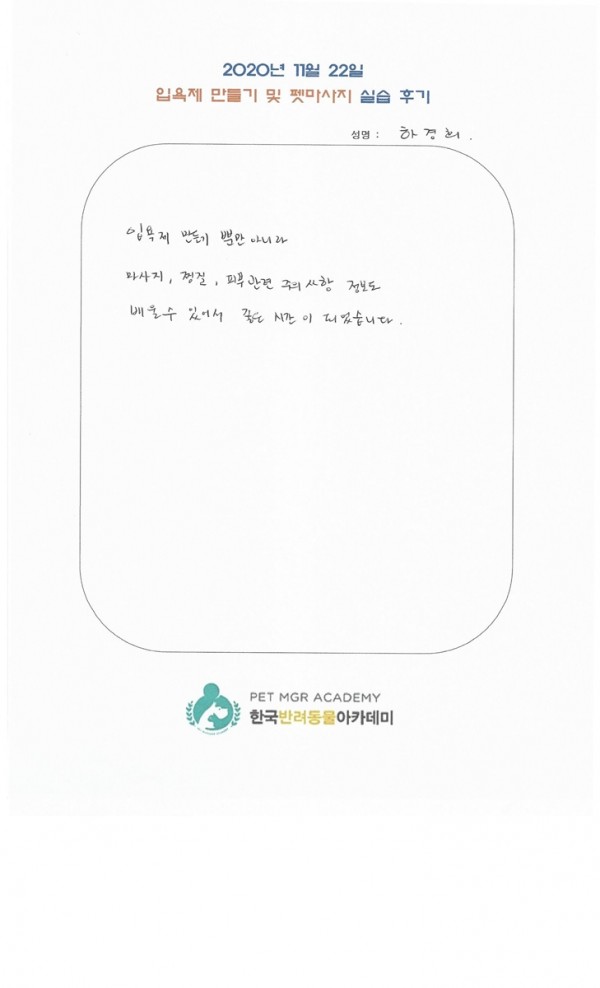 2020년 11월 22일
입욕제 만들기 및 펫마사지 실습 후기
성명 : 하경희.
입욕제 만들기 뿐만 아니라
마사지, 청결, 피부관련 주의사항 정보도
배울수 있어서 좋은 시간이 되었습니다.
PET MGR ACADEMY
한국반려동물아카데미